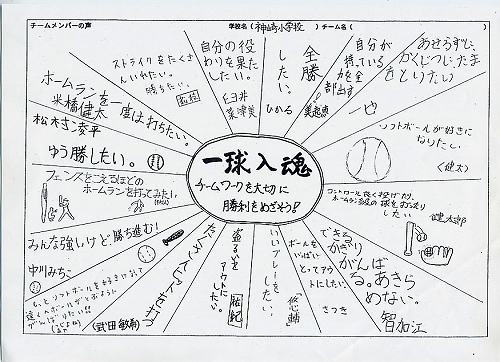 チームメンバーの声
学校名(神崎小学校 )チーム名( )
一球入魂
チームワークを大切に
勝利をめざそう!
自分の役
わりを果た
したい。
全勝
したい。
ひかる
自分が
持っている
力を全
部出す
あせらずに、
かくじつにいたま
をとりたい
ソフトボールが好きに
なりたい
(健太)
コントロール良く投げたり、
ホームラン級の球を打ったり
したい
健太郎
できる
かぎり
がんば
る。あきら
めない。
智加江
ボールを
いっぱい
とってアウ
トにしたい。
さつき
いいプレーを
したい。
盗るいを
アウトに
したい。
たくさんヒットを打つ
(武田敏寿)
もっとソフトボールを好きになって
遠くへボールがとぶように
がんばりたい!!
みんな強しけど、勝ち進む!
中川みちこ
フェンスをこえるほどの
ホームランを打ってみたい。
ゆう勝したい。
松村凌平
ホームランを一度は打ちたい。
米橋健太
ストライクをたくさ
んいれたい。
勝ちたい。